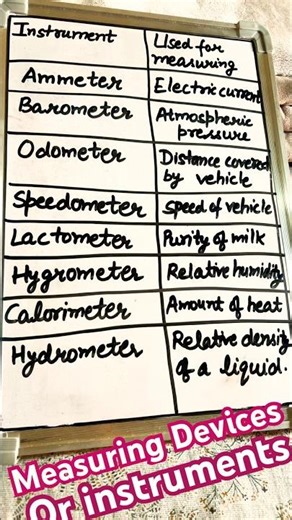 Instrument
Used for
measuring
Ammeter
Electric current
Barometer
Atmospheric
pressure
Odometer
Distance covered
by vehicle
Speedometer
Speed of vehicle
Lactometer
Purity of milk
Hygrometer
Relative humidity
Calorimeter
Amount of heat
Hydrometer
Relative density
of a liquid.
Measuring Devices
Or instruments